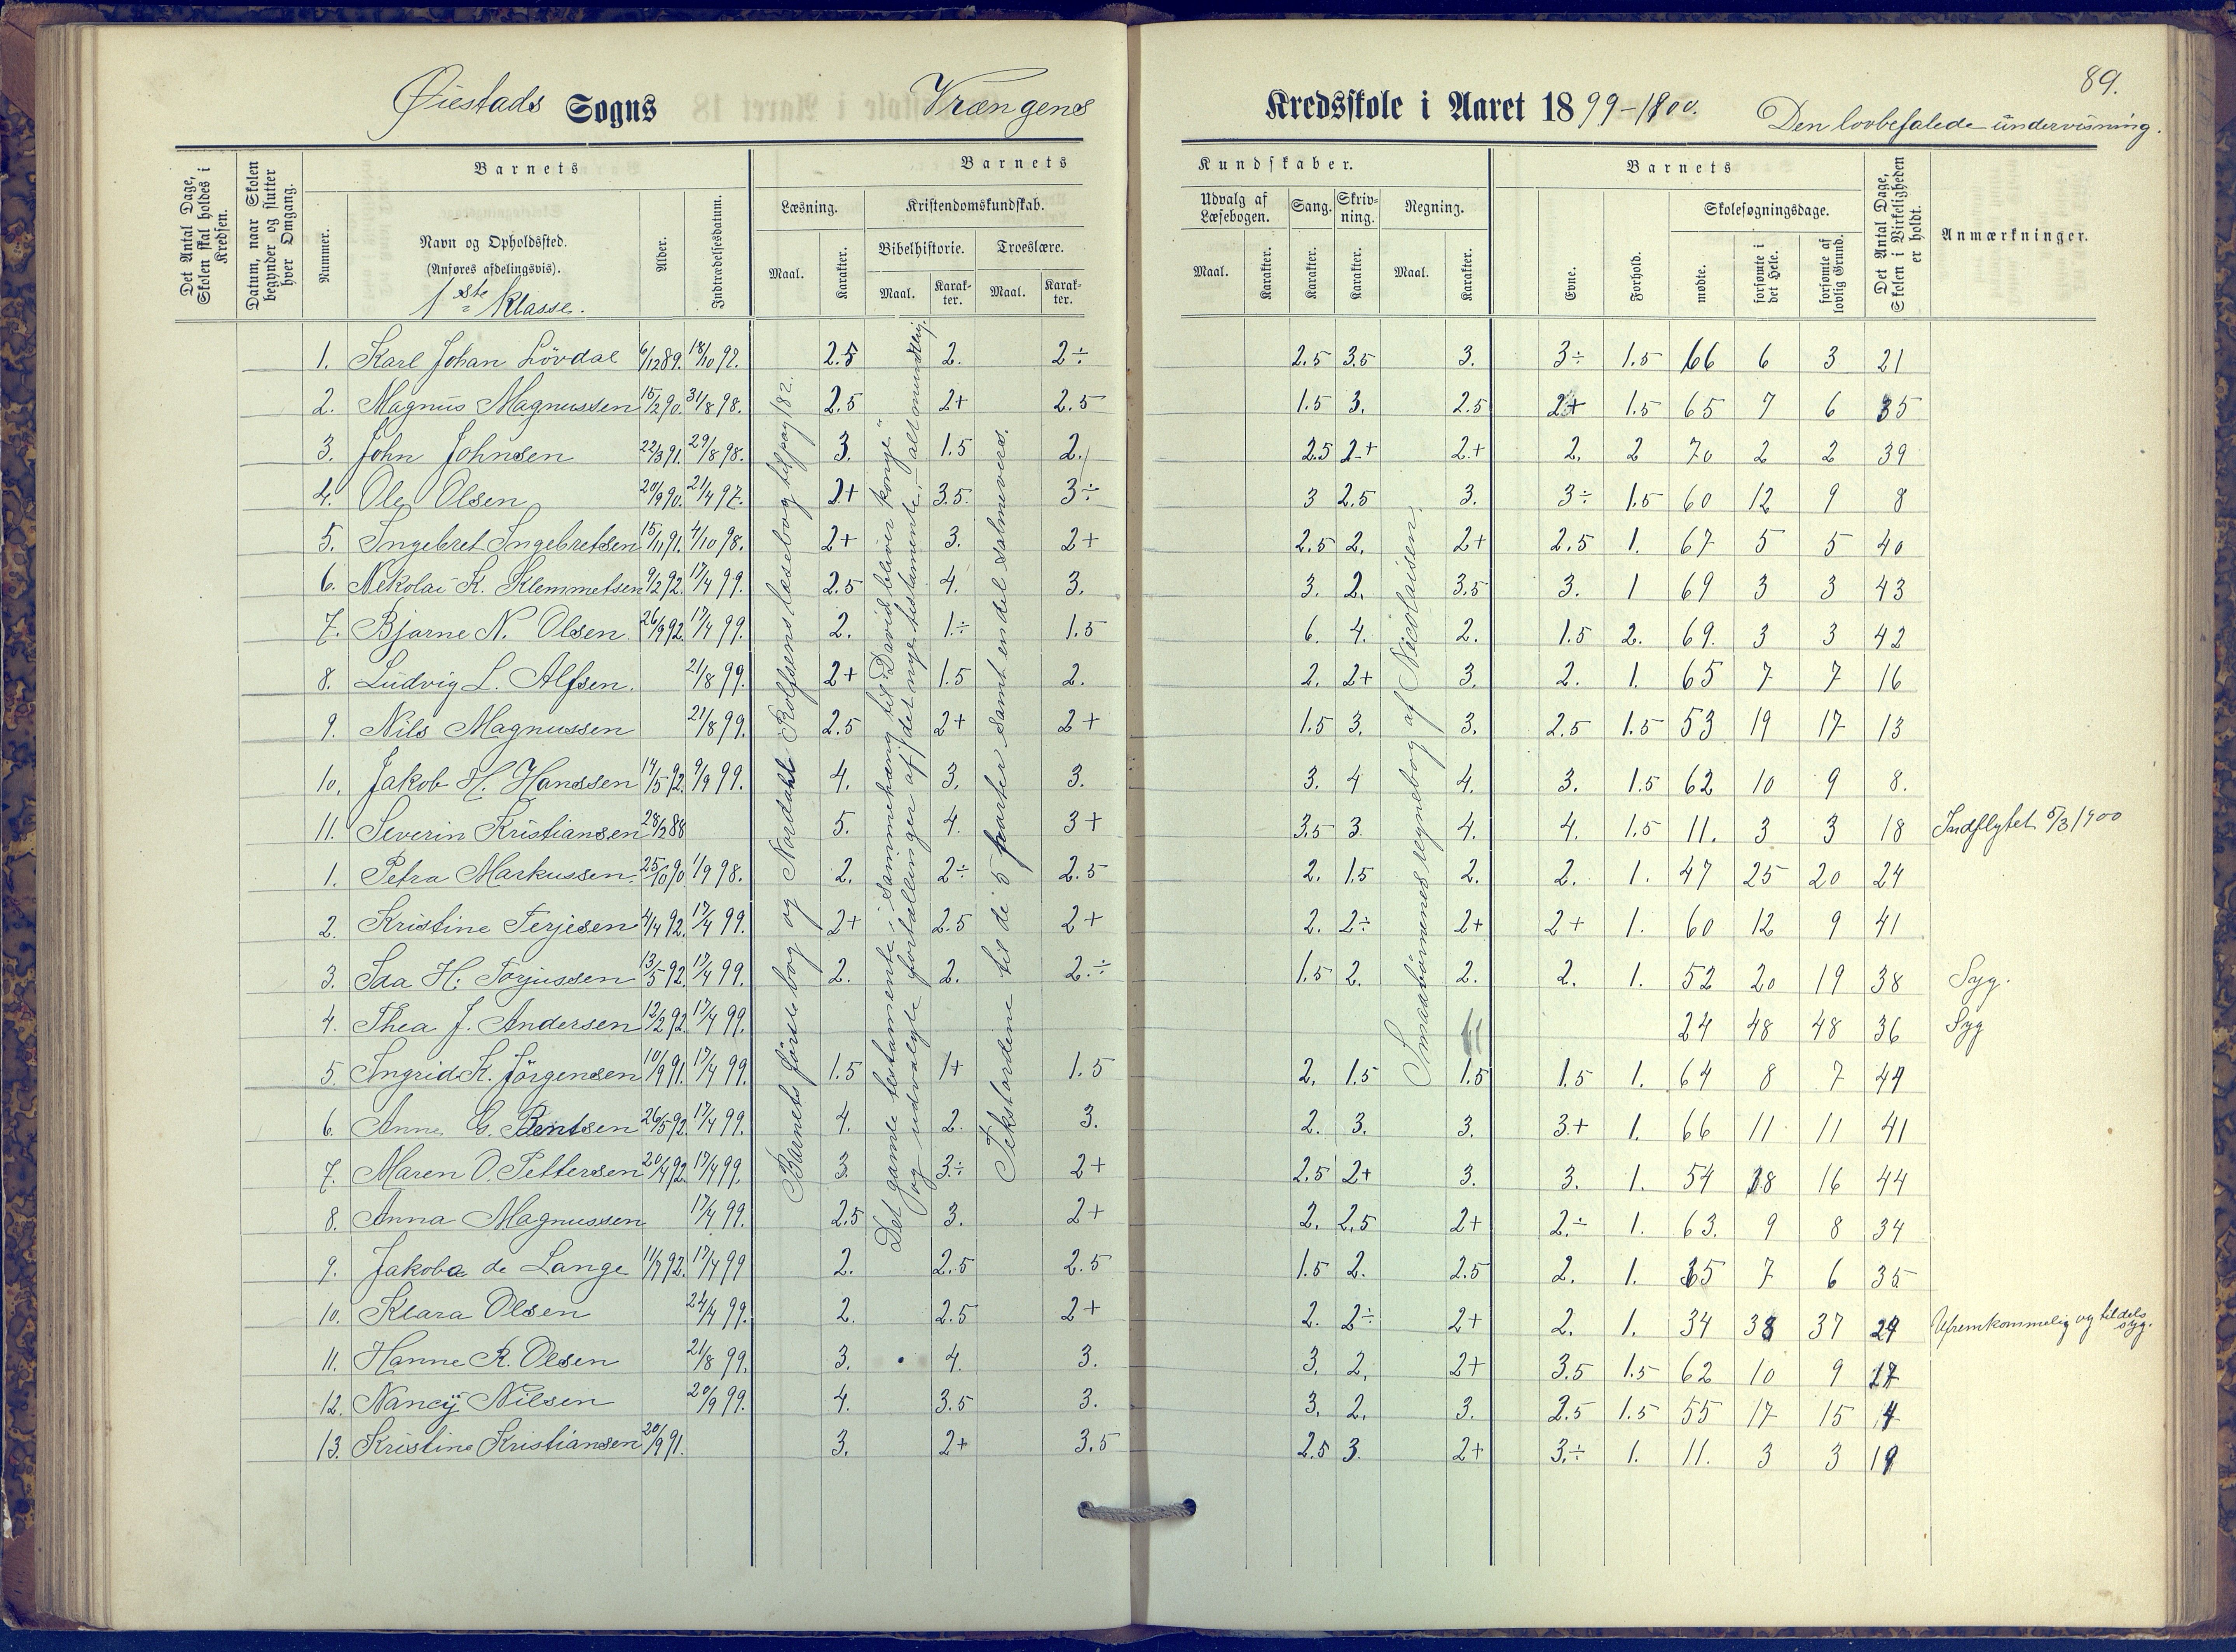 89.
Øiestads Sogns Vrængens Kredsskole i Aaret 1899-1900. Den lovbefalede undervisning.
Det Antal Dage, Skolen skal holdes i Kredsen.
Datum, naar Skolen begynder og slutter hver Omgang.
Barnets
Nummer.
Navn og Opholdssted.
(Anføres afdelingsvis).
1ste Klasse.
Alder.
Indtrædelsesdatum.
Barnets Kundskaber.
Læsning.
Maal. Karakter.
Kristendomskundskab.
Bibelhistorie. Troeslære.
Maal. Karakter. Maal. Karakter.
Udvalg af Læsebogen.
Maal. Karakter.
Sang. Karakter.
Skrivning. Karakter.
Regning.
Maal. Karakter.
Barnets
Evne. Forhold.
Skolesøgningsdage.
mødte. forsømte i det Hele. forsømte af lovlig Grund.
Det Antal Dage, Skolen i Virkeligheden er holdt.
Anmærkninger.
1. Karl Johan Lövdal 6/12 89. 18/10 97. 2.5 2. 2÷ 2.5 3.5 3. 3÷ 1.5 66 6 3 21
2. Magnus Magnussen 15/2 90. 31/8 98. 2.5 2+ 2.5 1.5 3. 2.5 2+ 1.5 65 7 6 35
3. John Johnsen 22/3 91. 29/8 98. 3. 1.5 2. 2.5 2+ 2+ 2. 2 70 2 2 39
4. Ole Olsen 20/9 90. 21/4 97. 2+ 3.5. 3÷ 3 2.5 3. 3÷ 1.5 60 12 9 8
5. Ingebret Ingebretsen 15/11 91. 4/10 98. 2+ 3. 2+ 2.5 2. 2+ 2.5 1. 67 5 5 40
6. Nekolai K. Klemmetsen 9/2 92. 17/4 99. 2.5 4. 3. 3. 2. 3.5 3. 1 69 3 3 43
7. Bjarne N. Olsen. 26/9 92. 17/4 99. 2. 1÷ 1.5 6. 4. 2. 1.5 2. 69. 3 3 42
8. Ludvig L. Alfsen. 21/8 99. 2+ 1.5 2. 2. 2+ 3. 2. 1. 65 7 7 16
9. Nils Magnussen 21/8 99. 2.5 2+ 2+ 1.5 3. 3. 2.5 1.5 53 19 17 13
10. Jakob H. Hanssen 14/5 92. 9/9 99. 4. 3. 3. 3. 4 4. 3. 1.5 62 10 9 8.
11. Severin Kristiansen 28/2 88 5. 4. 3+ 3.5 3. 4. 4. 1.5 11. 3 3 18 Indflyttet 5/3 1900
1. Petra Markussen. 25/10 90 1/9 98. 2. 2÷ 2.5 2. 1.5 2. 2. 1. 47 25 20 24
2. Kristine Terjesen 4/4 92. 17/4 99. 2+ 2.5 2+ 2. 2÷ 2+ 2+ 1. 60 12 9 41
3. Ida H. Torjussen 13/5 92. 17/4 99. 2. 2. 2.÷ 1.5 2. 2. 2. 1. 52 20 19 38 Syg.
4. Thea J. Andersen 12/2 92. 17/4 99. 24 48 48 36 Syg
5. Ingrid K. Jörgensen 10/9 91. 17/4 99. 1.5 1+ 1.5 2. 1.5 1.5 1.5 1. 64 8 7 44
6. Anne G. Bentsen 26/5 92. 17/4 99. 4. 2. 3. 2. 3. 3. 3+ 1. 66 11 11 41
7. Maren O. Pettersen 20/4 92. 17/4 99. 3. 3÷ 2+ 2.5 2+ 3. 3. 1. 54 18 16 44
8. Anna Magnussen 17/4 99. 2.5 3. 2+ 2. 2.5 2+ 2.÷ 1. 63. 9 8 34
9. Jakoba de Lange 11/7 92. 17/4 99 2. 2.5 2.5 1.5 2. 2.5 2. 1. 65 7 6 35
10. Klara Olsen 24/4 99. 2. 2.5 2+ 2. 2÷ 2+ 2. 1. 34 38 37 29 Ufremkommelig og tildels syg.
11. Hanne R. Olsen 21/8 99. 3. 4. 3. 3. 2. 2+ 3.5 1.5 62 10 9 17
12. Nancy Nilsen 20/9 99. 4. 3.5 3. 3. 2. 3. 2.5 1.5 55 17 15 4
13. Kristine Kristiansen 20/9 91. 3. 2+ 3.5 2.5 3. 2+ 3.÷ 1. 11. 3 3 19
Barnets förste bog og Nordahl Rolfsens læsebog til pag 182.
Det gamle testamente i sammenhæng til "David bliver konge"
og udvalgte fortællinger af det nye testamente, alt mundtlig.
Tekstordene til de 5 parter samt endel salmevers.
Smaabörnenes regnebog af Nicolaisen.